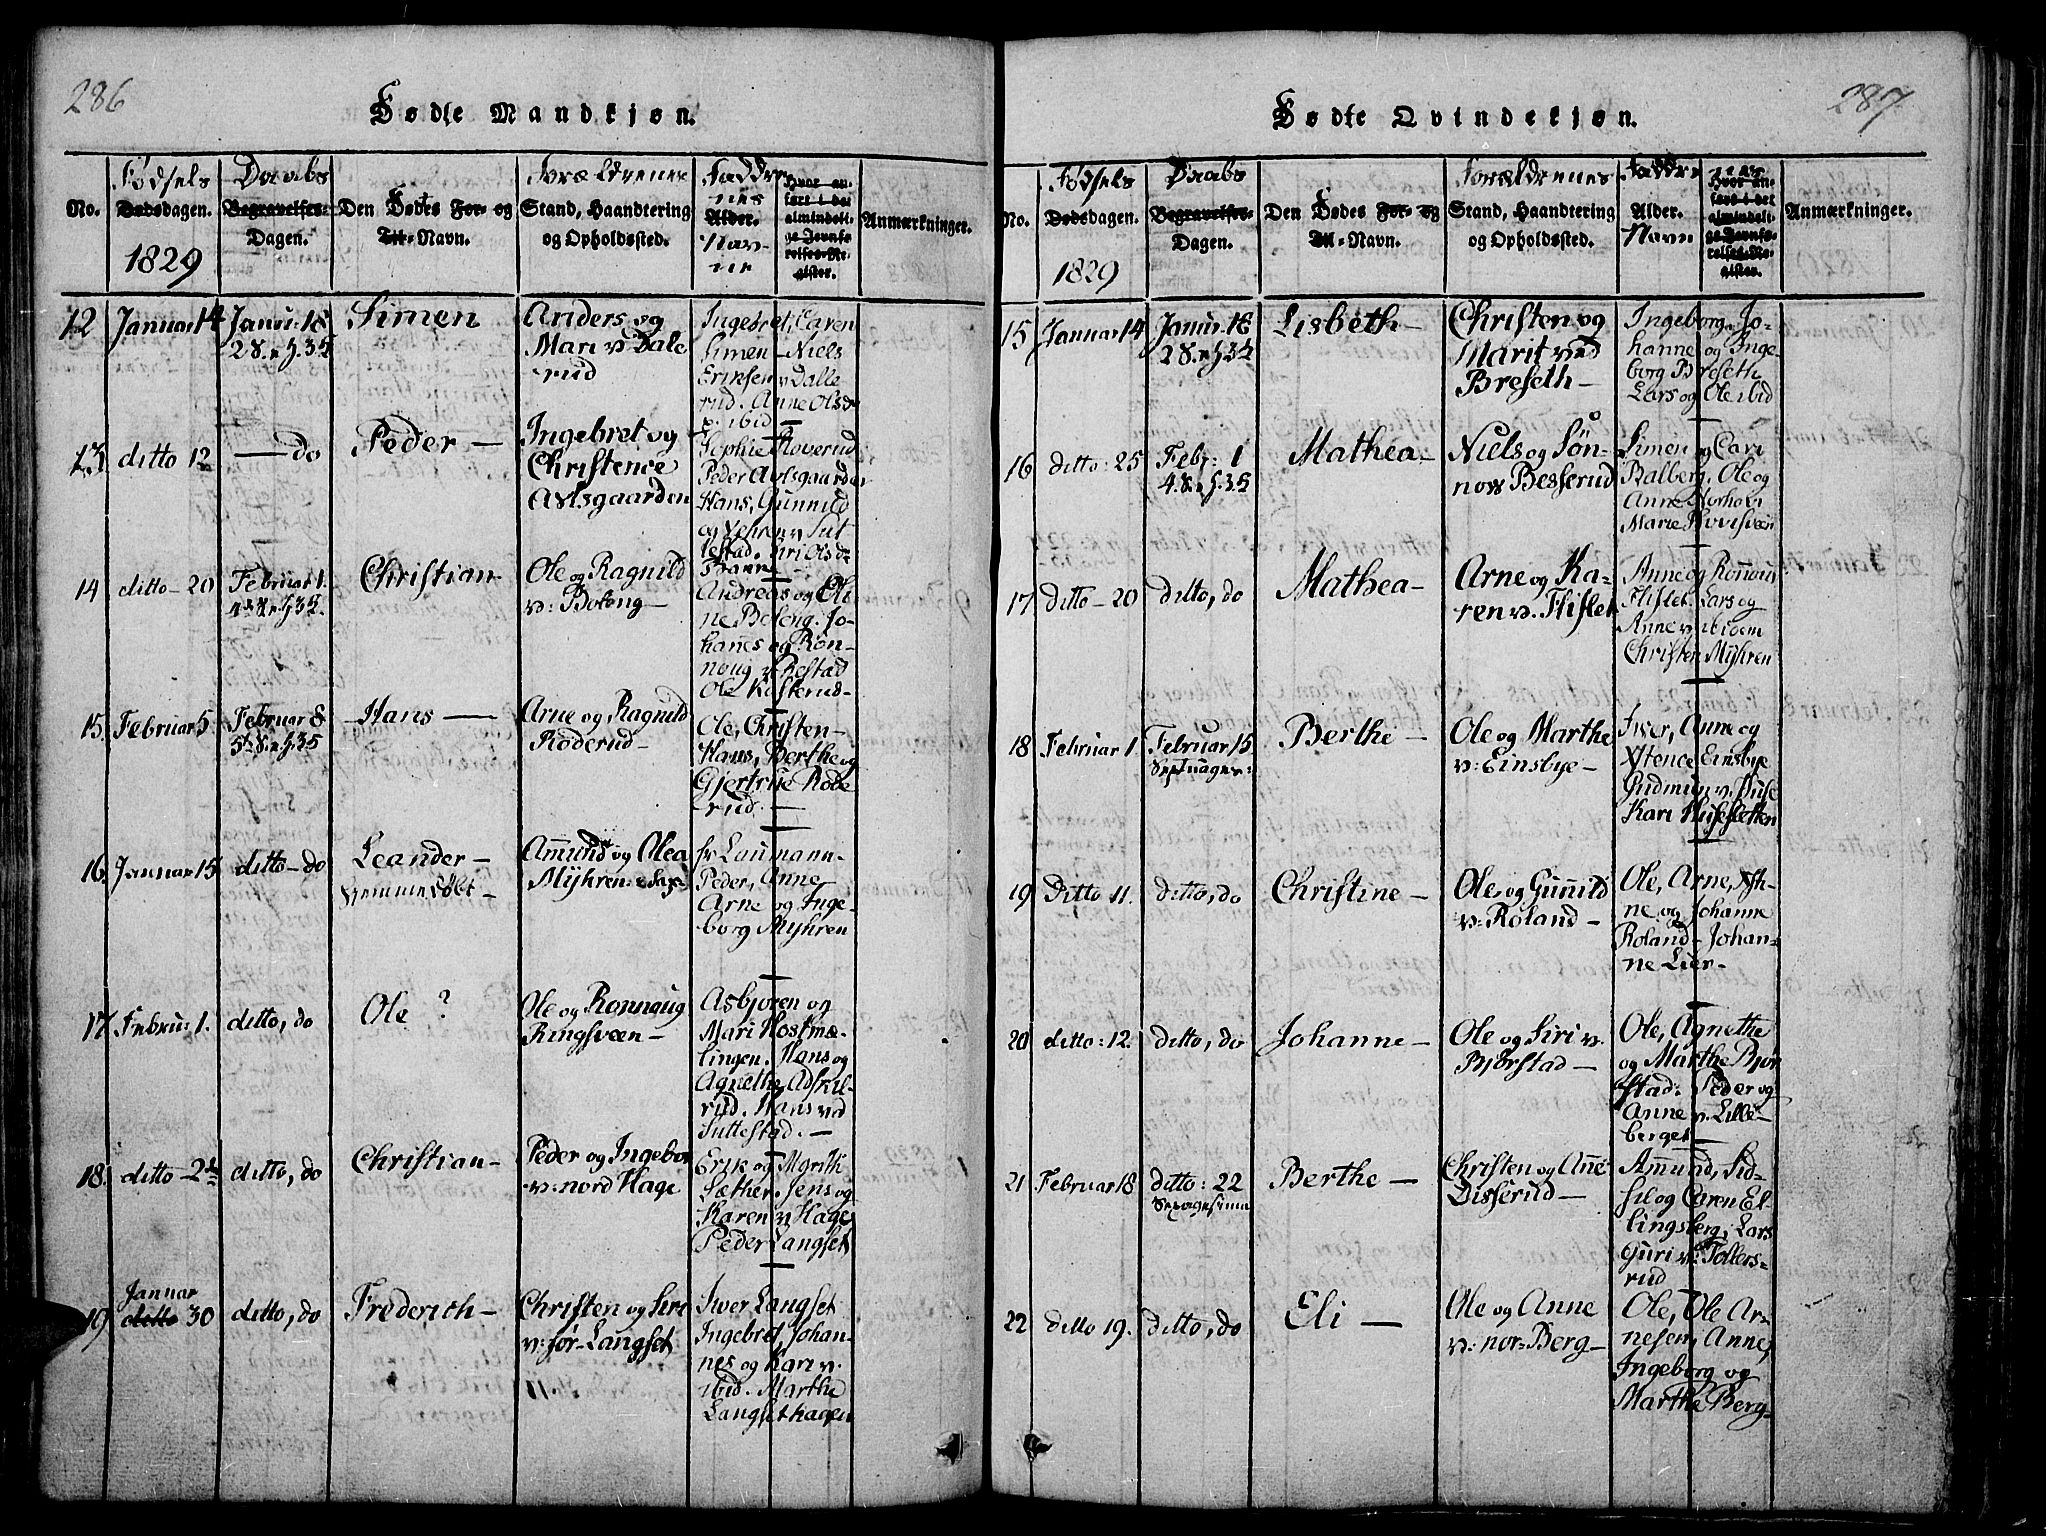 286
Fødte Mandkjøn.
No.
Fødsels
Dødsdagen.
1829
Daabs
Begravelses-
Dagen.
Den Dødes For- og
Til-Navn.
Forældrenes
Stand, Haandtering
og Opholdssted.
Faddre
nes
Alder.
Nav-
ne
Hvor an-
ført i det
almindeli-
ge Jevnfø-
relses-Re-
gister.
Anmærkninger.
12
Januar 14
Janur: 18
2 S. e. H. 3 K
Simen
Anders og
Mari v. Dale
rud
Ingebret, Caren
Simen - Niels
Eriksen v Dalle
rud. Anne Olsd.
p. ibid -
13
ditto 12
- do
Peder -
Ingebret og
Christence
Avlsgaarden
Sophie Hoverud
Peder Avlsgaarden
Hans, Gunnild
og v Sut
testad. Siri Olsd.
14
ditto - 20
Februar 1.
4de S. e. H. 3 K.
Christian
Ole og Ragnild
v: Boleng -
Andreas og Eli
ne Boleng. Jo-
hanes og Ron-
noug v. Restad
Ole Kosterud -
15.
Februar 5.
Februar 8
5te S. e. H. 3 K
Hans -
Arne og Ragnild
Roderud -
Ole, Christen -
Hans, Berthe og
Gjertrue Rode
rud -
16.
Januar 15
ditto - do
Leander -
hjemmedøbt -
Amund og Olea
Myhren
fr Laumann -
Peder, Anne
Arne og Inge-
borg Myhren
17.
Febru: 1.
ditto, do
Ole ?
Ole og Ronnoug
Ringsveen -
Asbjoren og
Mari Hostmæ-
lingen. Hans og
Agnethe Adskil-
rud. Hans ved
Suttestad. -
18.
ditto - 2d
ditto, do
Christian -
Peder og Ingebor
v: nord Hage
Erik og Marith
Sæther. Jens og
Karen v Hage
Peder Langset
19
Januar
ditto 30
ditto, do
Frederich -
Christen og Siri
v: for- Langset
Iwer Langset
Ingebret, Johan-
nes og Kari v.
ibid. Marthe
Langsethagen
287
Fødte Qvindekjøn.
No.
Fødsels
Dødsdagen.
1829
Daabs
Begravelses-
Dagen.
Den Dødes For- og
Til-Navn.
Forældrenes
Stand, Haandtering
og Opholdssted.
Faddre
Alder.
Navn
nes
Hvor an-
ført i det
almindeli-
ge Jevnfø-
relses-Re-
gister.
Anmærkninger.
15
Januar 14
Janur. 18
2 S. e. H. 3 K
Lisbeth -
Christen og
Marit ved
Breseth -
Ingeborg, Jo-
hanne og Inge-
borg Breseth
Lars og Ole ibid
16
ditto: 25
Febr: 1
4. S. e. H. 3 K
Mathea -
Niels og Søn-
nov Besserud
Simen og Cari
Balberg, Ole og
Anne Norhovi
Marie
17
ditto - 20
ditto, do
Mathea -
Arne og Ka-
ren v. Flislet
Anne og Ronnoug
Flislet. Lars og
Anne v. ibidem
Christen Myhren
18
Februar 1.
Februar 15
Septuages:
Berthe -
Ole og Marthe
v: Einsbye -
Iwer, Anne og
Xstence Einsbye
Gudmun v. Huse
Kari Husesletten
19
Ditto 11.
ditto, do
Christine -
Ole og Gunnild
v: Roland -
Ole, Arne, Xsti-
ne og Johanne
Roland - Johan-
ne Lier -
20
ditto: 12.
ditto, do
Johanne -
Ole og Siri v.
Bjørstad -
Ole, Agnethe
og Marthe Bjør
stad: Peder og
Anne v. Lille-
berget -
21
Februar 18
ditto: 22
Sexagesima
Berthe -
Christen og Ane
Disserud -
Amund, Sid-
sil og Caren El-
lingsberg, Lars
Guri v: Tollers-
rud
22
ditto 19.
ditto, do
Eli -
Ole og Anne
v: nor= Berg -
Ole, Ole Ar-
nesen, Anne,
Ingeborg og
Marthe Berg -